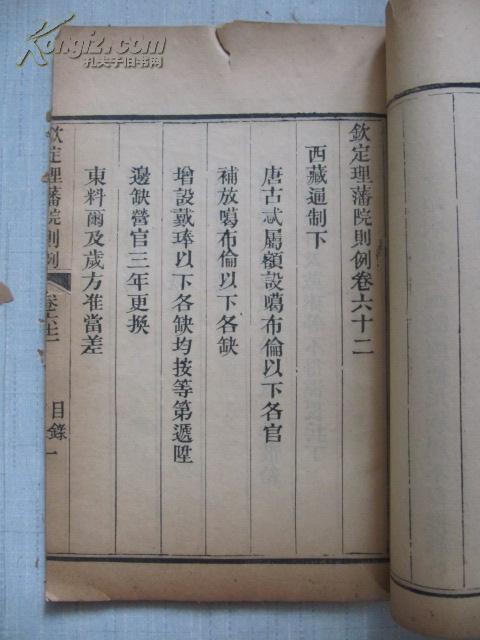 欽定理藩院則例卷六十二
西藏通制下
唐古忒屬額設噶布倫以下各官
補放噶布倫以下各缺
增設戴琫以下各缺均按等第遞陞
邊缺營官三年更換
東科爾及歲方准當差
欽定理藩院則例
目錄一
Kongfz.com
孔夫子旧书网